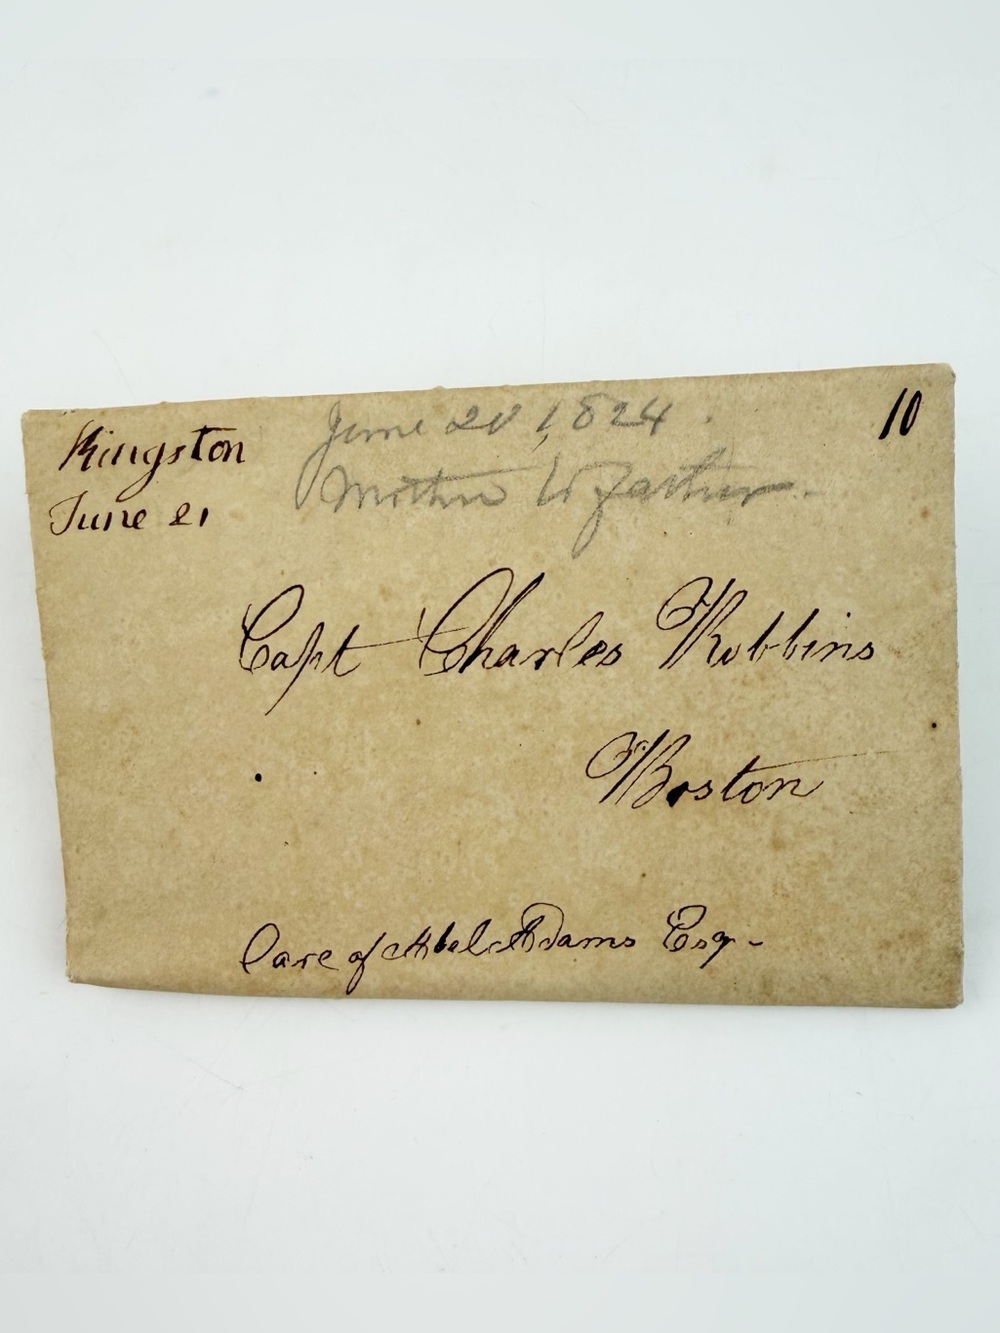 Kingston
June 21
June 20, 1824
Mother to father.
10
Capt Charles Robbins
Boston
Care of Abel Adams Esq -